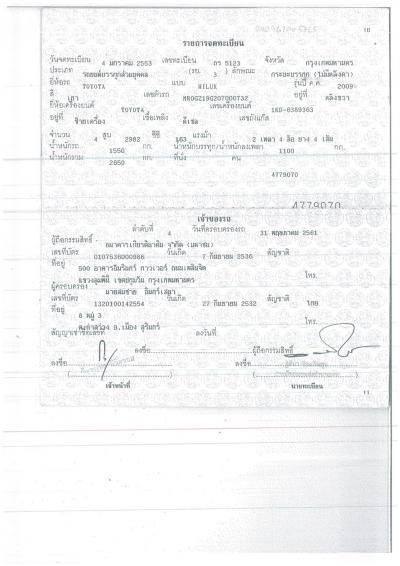 10
รายการจดทะเบียน
วันจดทะเบียน 4 มกราคม 2553 เลขทะเบียน 5123 จังหวัด กรุงเทพมหานคร
ประเภท รถยนต์บรรทุกส่วนบุคคล (รย. 3 ) ลักษณะ กระบะบรรทุก (ไม่มีหลังคา)
ยี่ห้อรถ TOYOTA แบบ HILUX รุ่นปี ค.ศ. 2009
สี เทา เลขตัวรถ MR0GZ19G207000732 อยู่ที่
ยี่ห้อเครื่องยนต์ TOYOTA เลขเครื่องยนต์ 1KD-6389363
อยู่ที่ ซ้ายเครื่อง เชื้อเพลิง ดีเซล เลขถังแก๊ส
จำนวน 4 สูบ 2982 ซีซี 163 แรงม้า 2 เพลา 4 ล้อ ยาง 4 เส้น
น้ำหนักรถ 1550 กก. น้ำหนักบรรทุก/น้ำหนักลงเพลา 1100 กก.
น้ำหนักรวม 2650 กก. ที่นั่ง คน
4779070
4779070
เจ้าของรถ
ลำดับที่ 4 วันที่ครอบครองรถ 31 พฤษภาคม 2561
ผู้ถือกรรมสิทธิ์ ธนาคารเกียรตินาคิน จำกัด (มหาชน)
เลขที่บัตร 0107536000986 วันเกิด 7 กันยายน 2536 สัญชาติ
ที่อยู่ 500 อาคารอัมรินทร์ ทาวเวอร์ ถนนเพลินจิต
แขวงลุมพินี เขตปทุมวัน กรุงเทพมหานคร โทร.
ผู้ครอบครอง นายสมชาย
เลขที่บัตร 1320100142554 วันเกิด 27 กันยายน 2532 สัญชาติ ไทย
ที่อยู่ 8 หมู่ 3
อ.เมือง สุรินทร์ โทร.
สัญญาเช่าซื้อเลขที่ ลงวันที่
ลงชื่อ ผู้ถือกรรมสิทธิ์
ลงชื่อ ลงชื่อ
เจ้าหน้าที่ นายทะเบียน
11